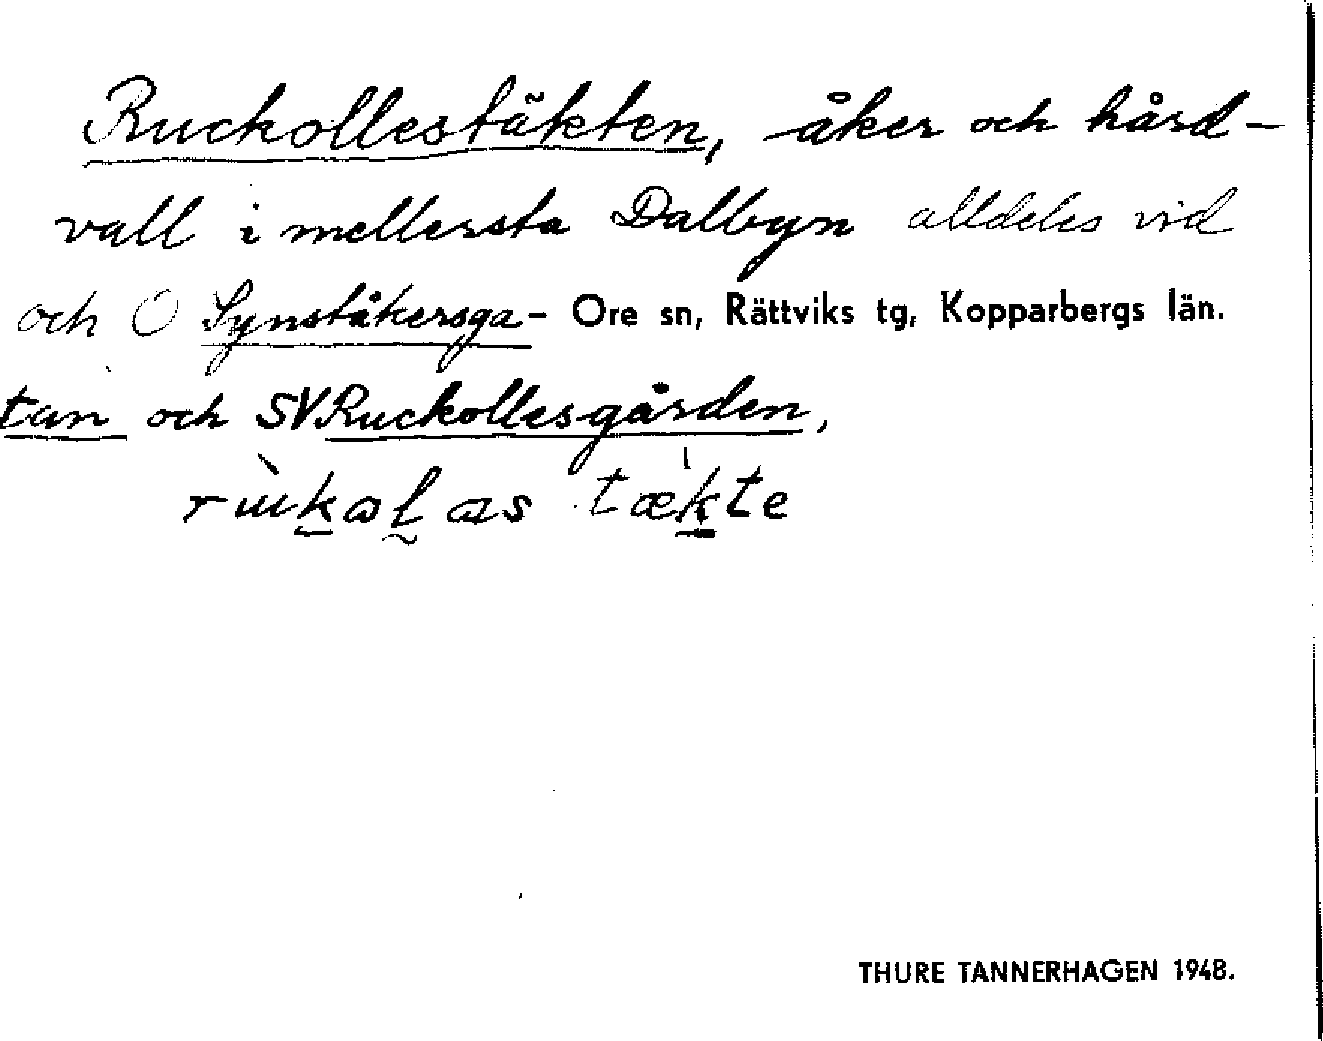 Ruckollestäkten, åker och hård-
vall i mellersta Dalbyn alldeles vid
och O Synståkersga- Ore sn, Rättviks tg, Kopparbergs län.
tan och SV Ruckollesgården,
THURE TANNERHAGEN 1948.